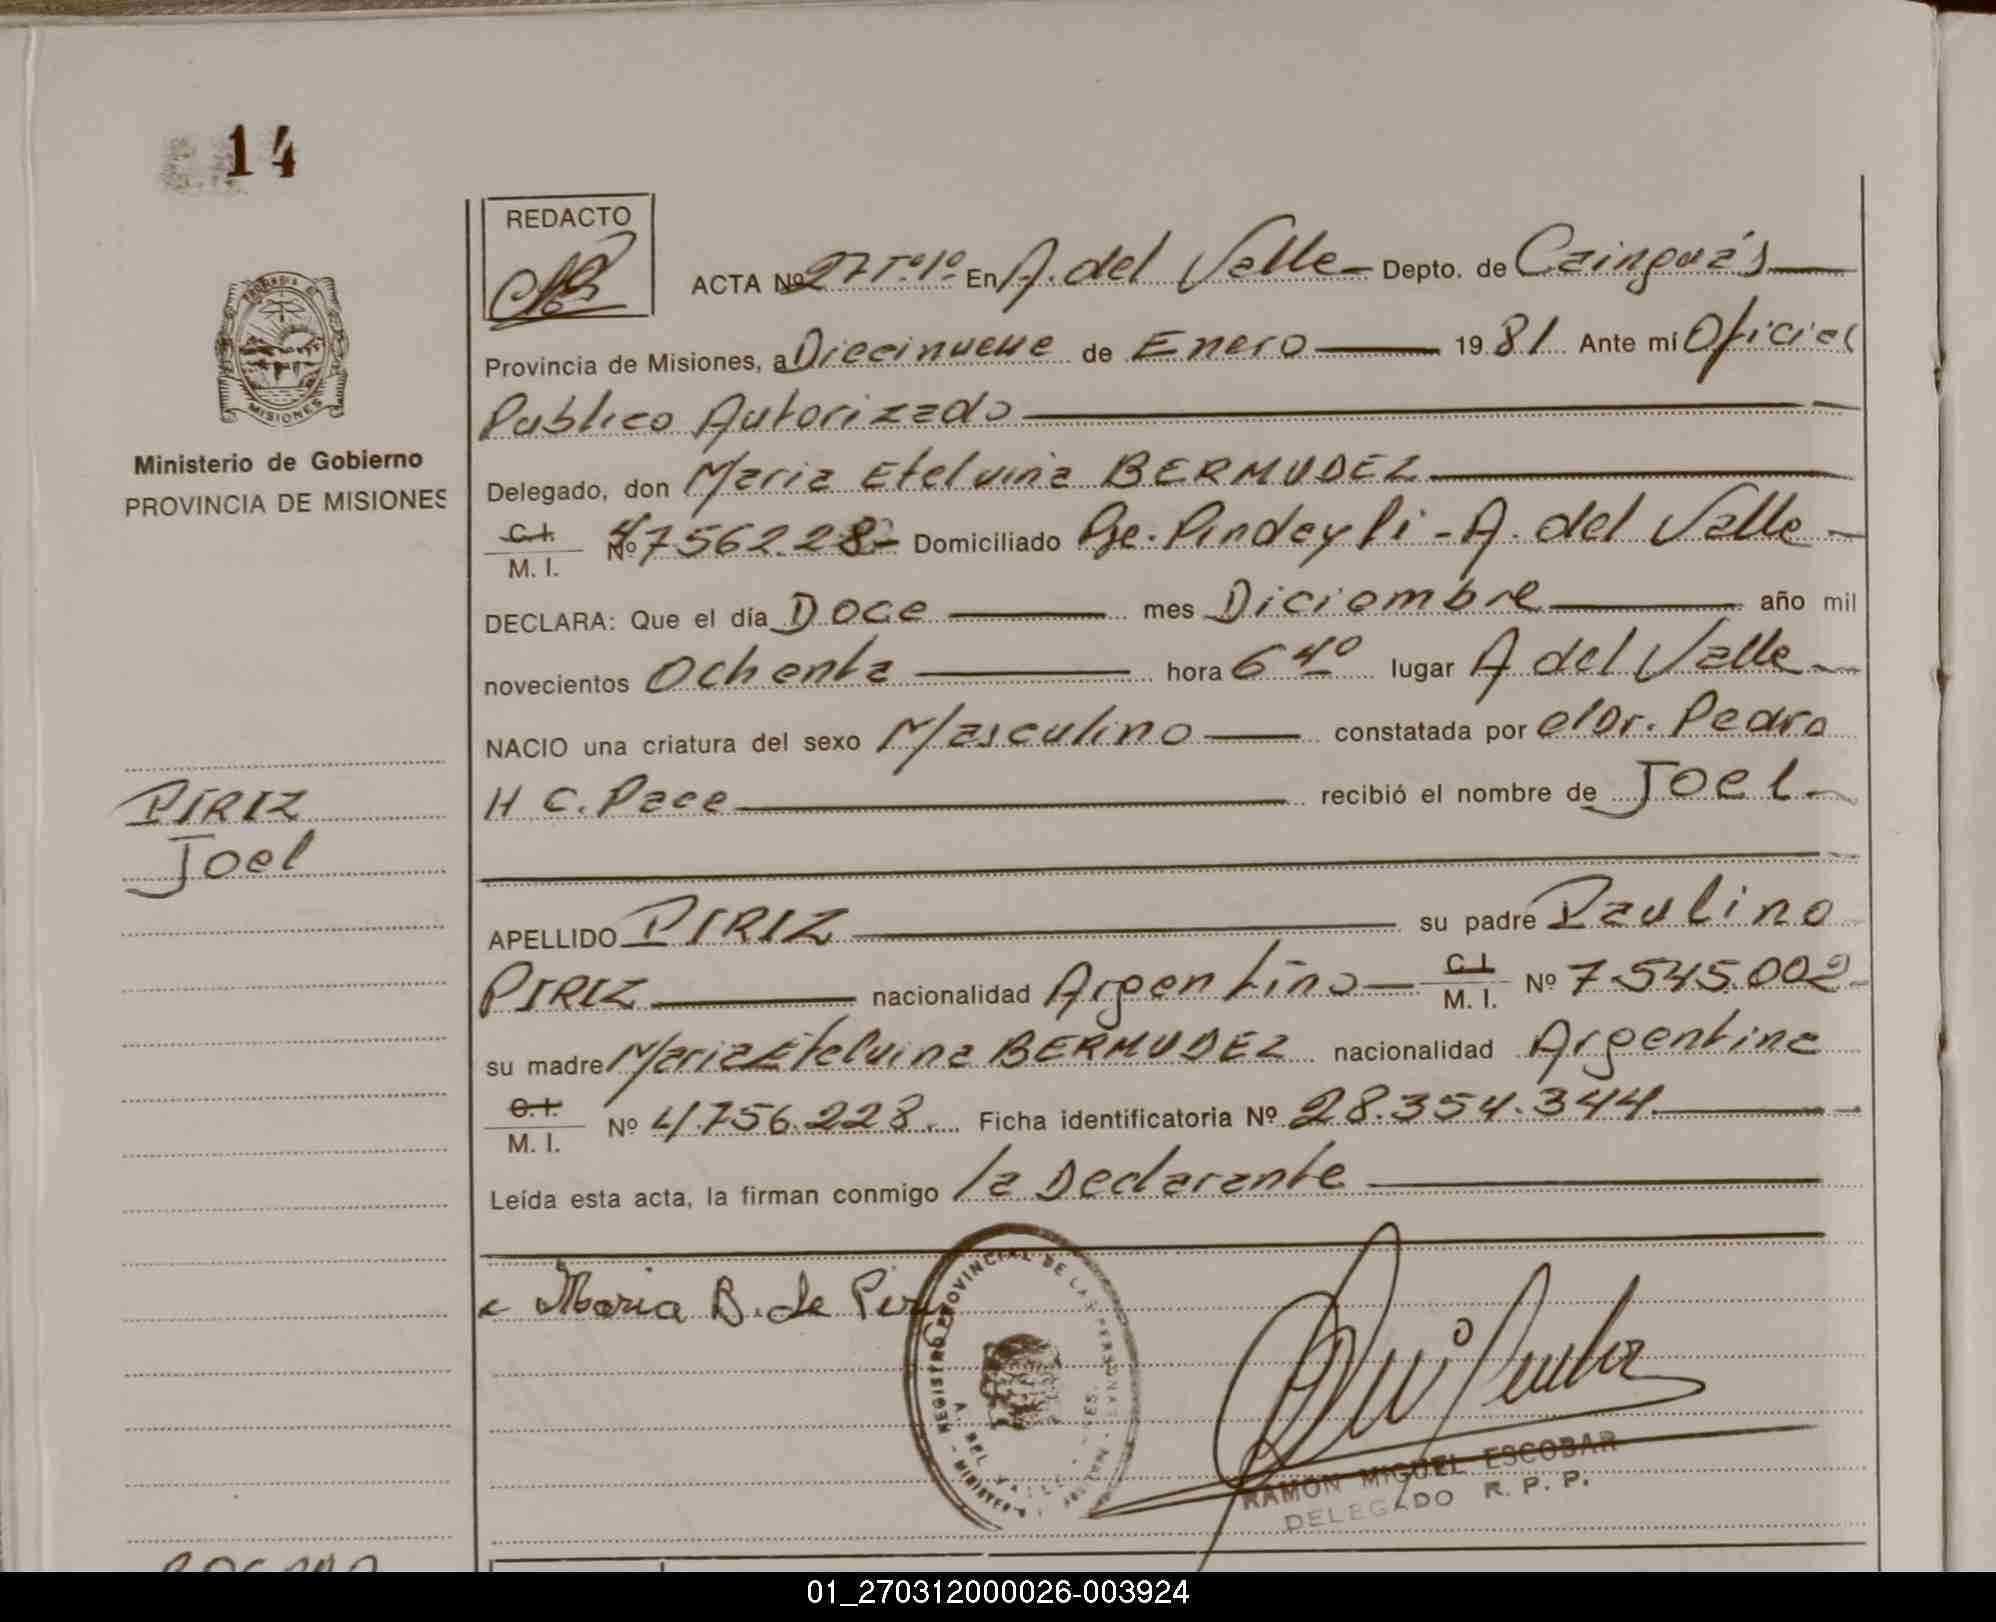 14
REDACTO
ACTA Nº 27 Tº1º En A. del Valle Depto. de Cainguás
Provincia de Misiones, a Diecinueve de Enero 1981 Ante mí Oficial
Publico Autorizado
Ministerio de Gobierno
PROVINCIA DE MISIONES
Delegado, don Maria Etelvina BERMUDEZ
C.I. M. I. Nº 4756228 Domiciliado Pje. Pindayti - A. del Valle
DECLARA: Que el día Doce mes Diciembre año mil
novecientos Ochenta hora 6 40 lugar A del Valle
NACIO una criatura del sexo Masculino constatada por el Dr. Pedro
H C. Pace recibió el nombre de Joel
PIRIZ
Joel
APELLIDO PIRIZ su padre Paulino
PIRIZ nacionalidad Argentino C.I. M. I. Nº 7.545.002
su madre Maria Etelvina BERMUDEZ nacionalidad Argentina
C.I. M. I. Nº 4.756.228. Ficha identificatoria Nº 28.354.344
Leída esta acta, la firman conmigo la Declarante
Maria B. de Piriz
REGISTRO PROVINCIAL DE LAS PERSONAS
A. DEL VALLE
MISIONES
RAMON MIGUEL ESCOBAR
DELEGADO R. P. P.
01_270312000026-003924